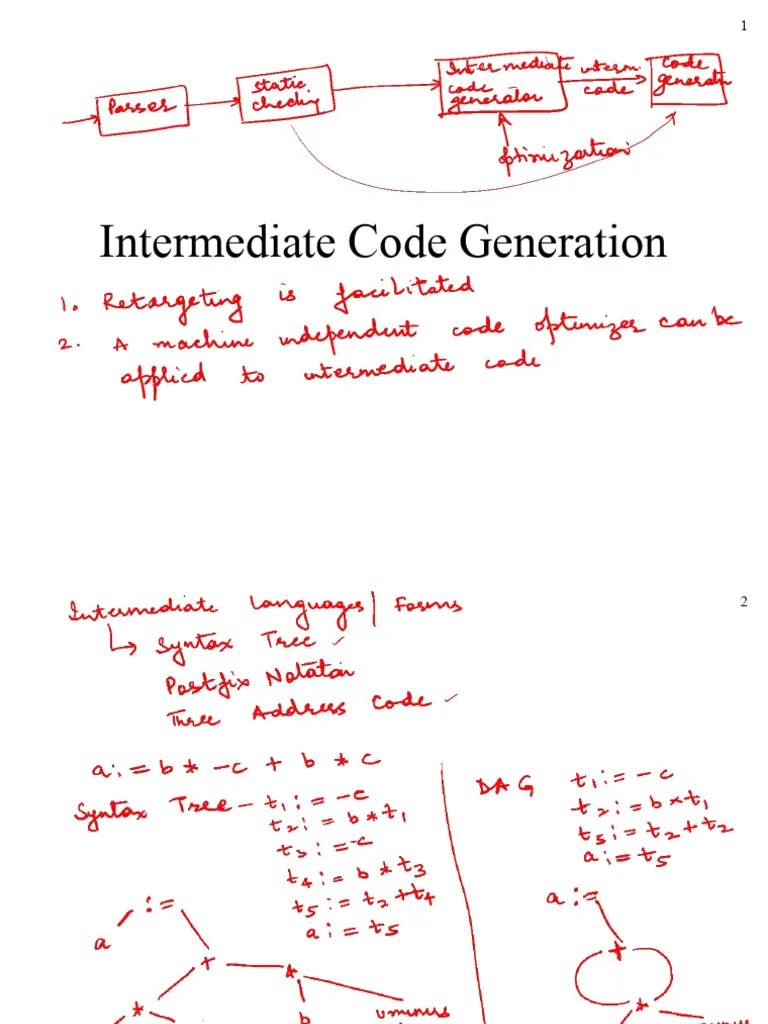 1
Parser
static checking
Intermediate code generator
interm. code
Code generatn
optimization
Intermediate Code Generation
1. Retargeting is facilitated
2. A machine independent code optimizer can be
applied to intermediate code
2
Intermediate Languages | Forms
Syntax Tree
Postfix Notation
Three Address Code
a := b * -c + b * c
Syntax Tree - t1 := -c
t2 := b * t1
t3 := -c
t4 := b * t3
t5 := t2 + t4
a := t5
:=
a
+
*
*
b
uminus
DAG t1 := -c
t2 := b * t1
t5 := t2 + t2
a := t5
a :=
+
*